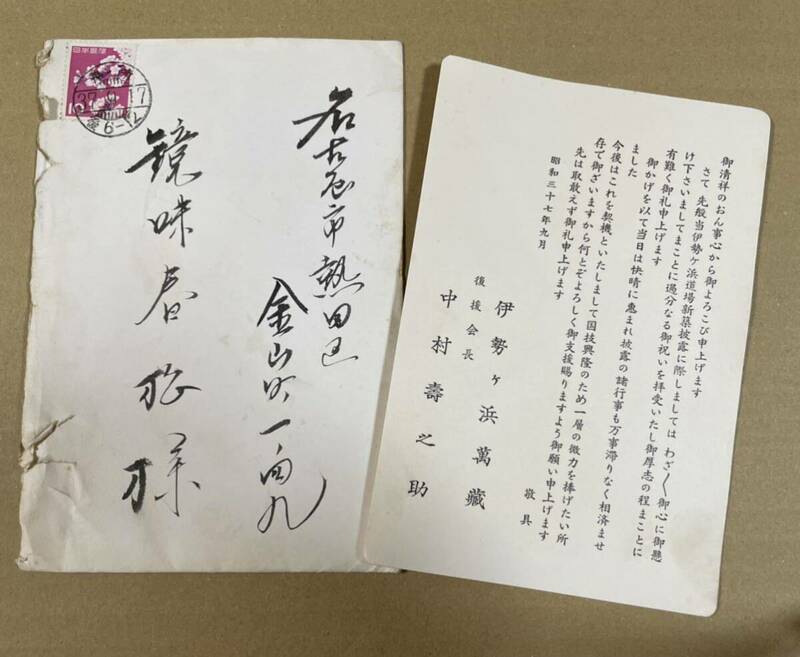 日本郵便
10
37
17
6-12
名古屋市熱田区
金山町一ノ四九
鏡味春
様
御清祥のおん事心から御よろこび申上げます
さて 先般当伊勢ケ浜道場新築披露に際しましては わざ〳〵御心に御懸
け下さいましてまことに過分なる御祝いを拝受いたし御厚志の程まことに
有難く御礼申上げます
御かげを以て当日は快晴に恵まれ披露の諸行事も万事滞りなく相済ませ
ました
今後はこれを契機といたしまして国技興隆のため一層の微力を捧げたい所
存で御ざいますから何とぞよろしく御支援賜りますよう御願い申上げます
先は取敢えず御礼申上げます
敬具
昭和三十七年九月
伊勢ヶ浜萬藏
後援会長
中村壽之助